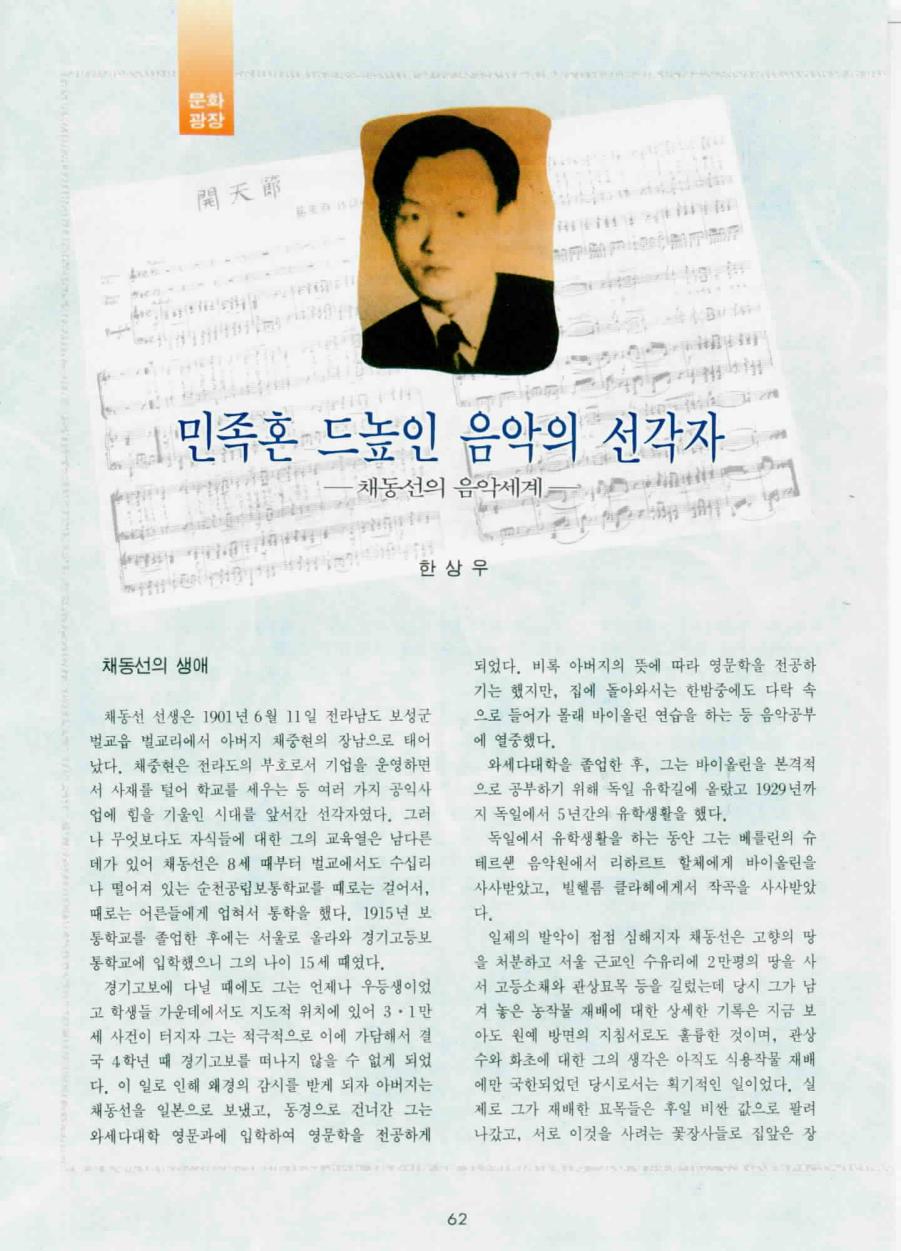 문화
광장
開天節
민족혼 드높인 음악의 선각자
채동선의 음악세계
한 상 우
채동선의 생애
채동선 선생은 1901년 6월 11일 전라남도 보성군
벌교읍 벌교리에서 아버지 채중현의 장남으로 태어
났다. 채중현은 전라도의 부호로서 기업을 운영하면
서 사재를 털어 학교를 세우는 등 여러 가지 공익사
업에 힘을 기울인 시대를 앞서간 선각자였다. 그러
나 무엇보다도 자식들에 대한 그의 교육열은 남다른
데가 있어 채동선은 8세 때부터 벌교에서도 수십리
나 떨어져 있는 순천공립보통학교를 때로는 걸어서,
때로는 어른들에게 업혀서 통학을 했다. 1915년 보
통학교를 졸업한 후에는 서울로 올라와 경기고등보
통학교에 입학했으니 그의 나이 15세 때였다.
경기고보에 다닐 때에도 그는 언제나 우등생이었
고 학생들 가운데에서도 지도적 위치에 있어 3·1만
세 사건이 터지자 그는 적극적으로 이에 가담해서 결
국 4학년 때 경기고보를 떠나지 않을 수 없게 되었
다. 이 일로 인해 왜경의 감시를 받게 되자 아버지는
채동선을 일본으로 보냈고, 동경으로 건너간 그는
와세다대학 영문과에 입학하여 영문학을 전공하게
되었다. 비록 아버지의 뜻에 따라 영문학을 전공하
기는 했지만, 집에 돌아와서는 한밤중에도 다락 속
으로 들어가 몰래 바이올린 연습을 하는 등 음악공부
에 열중했다.
와세다대학을 졸업한 후, 그는 바이올린을 본격적
으로 공부하기 위해 독일 유학길에 올랐고 1929년까
지 독일에서 5년간의 유학생활을 했다.
독일에서 유학생활을 하는 동안 그는 베를린의 슈
테르쉔 음악원에서 리하르트 할체에게 바이올린을
사사받았고, 빌헬름 클라헤에게서 작곡을 사사받았
다.
일제의 발악이 점점 심해지자 채동선은 고향의 땅
을 처분하고 서울 근교인 수유리에 2만평의 땅을 사
서 고등소채와 관상묘목 등을 길렀는데 당시 그가 남
겨 놓은 농작물 재배에 대한 상세한 기록은 지금 보
아도 원예 방면의 지침서로도 훌륭한 것이며, 관상
수와 화초에 대한 그의 생각은 아직도 식용작물 재배
에만 국한되었던 당시로서는 획기적인 일이었다. 실
제로 그가 재배한 묘목들은 후일 비싼 값으로 팔려
나갔고, 서로 이것을 사려는 꽃장사들로 집앞은 장
62